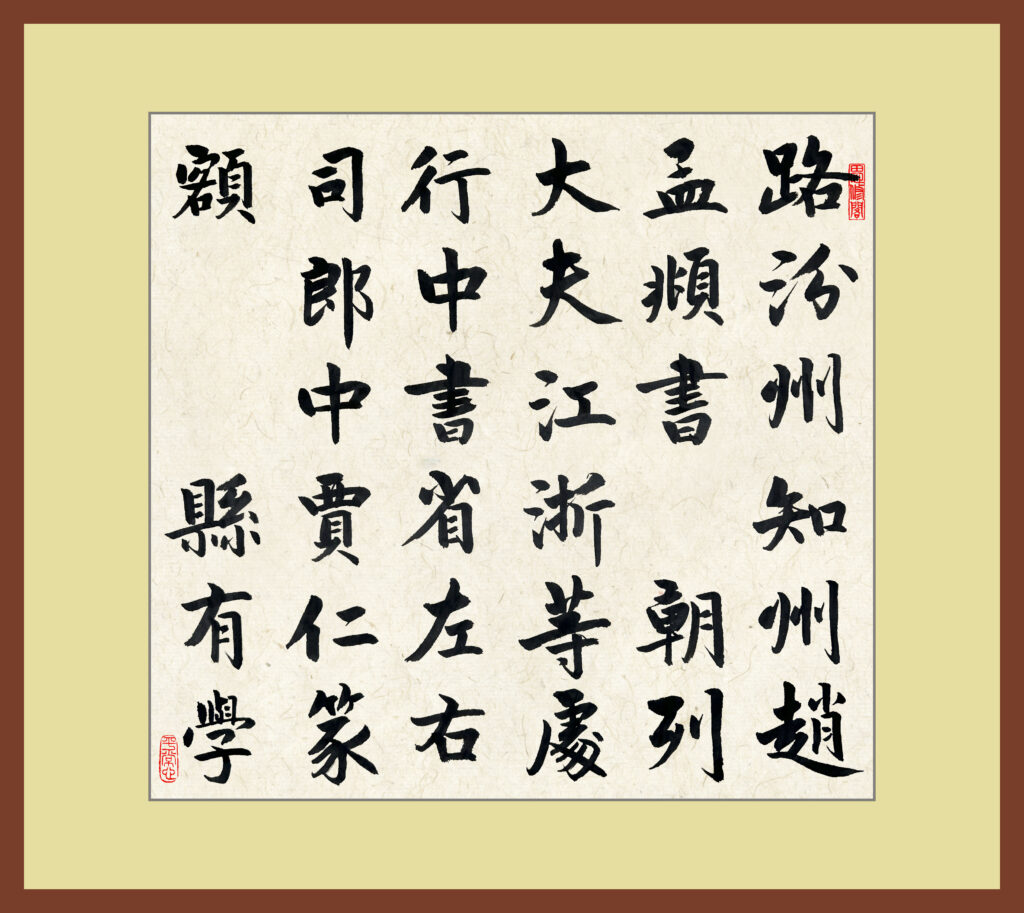 路汾州知州趙
孟頫書 朝列
大夫江浙等處
行中書省左右
司郎中賈仁篆
額 縣有學
平常心